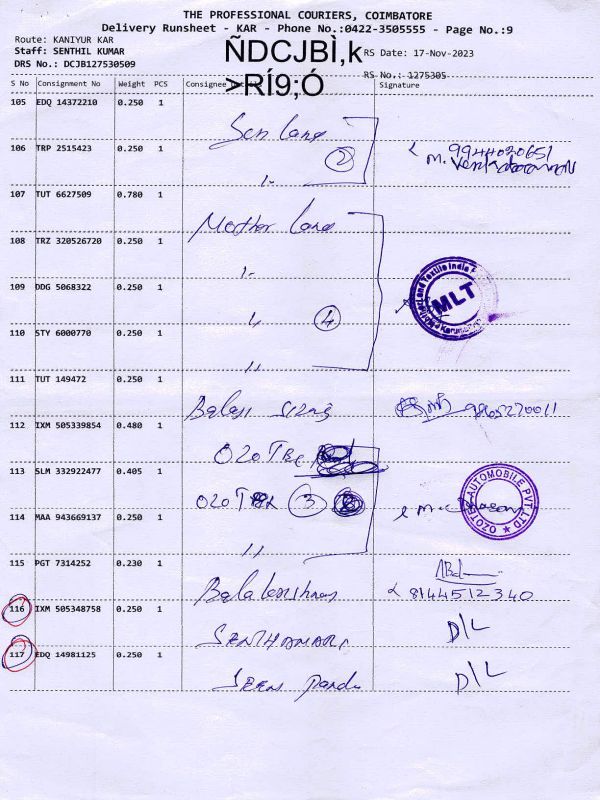 THE PROFESSIONAL COURIERS, COIMBATORE
Delivery Runsheet - KAR - Phone No.:0422-3505555 - Page No.:9
Route: KANIYUR KAR
Staff: SENTHIL KUMAR
ÑDCJBÌ,k
RS Date: 17-Nov-2023
DRS No.: DCJB127530509
>RÍ9;Ó
RS No.: 1275305
S No Consignment No Weight PCS Consignee Signature
105 EDQ 14372210 0.250 1
Sen Land
106 TRP 2515423 0.250 1
2
9944020651
M.
107 TUT 6627509 0.780 1
Mother Land
108 TRZ 320526720 0.250 1
109 DDG 5068322 0.250 1
4
MLT
110 STY 6000770 0.250 1
111 TUT 149472 0.250 1
Balaji
9865270011
112 IXM 505339854 0.480 1
113 SLM 332922477 0.405 1
3
OZOTEX AUTOMOBILE PVT LTD
114 MAA 943669137 0.250 1
115 PGT 7314252 0.230 1
Balakrishnan
8144512340
116 IXM 505348758 0.250 1
D/L
117 EDQ 14981125 0.250 1
D/L